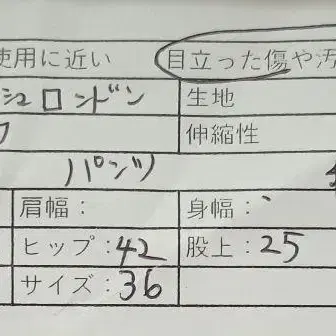 使用に近い 目立った傷や汚
シュロンドン 生地
伸縮性
パンツ
肩幅： 身幅：
ヒップ：42 股上：25
サイズ：36